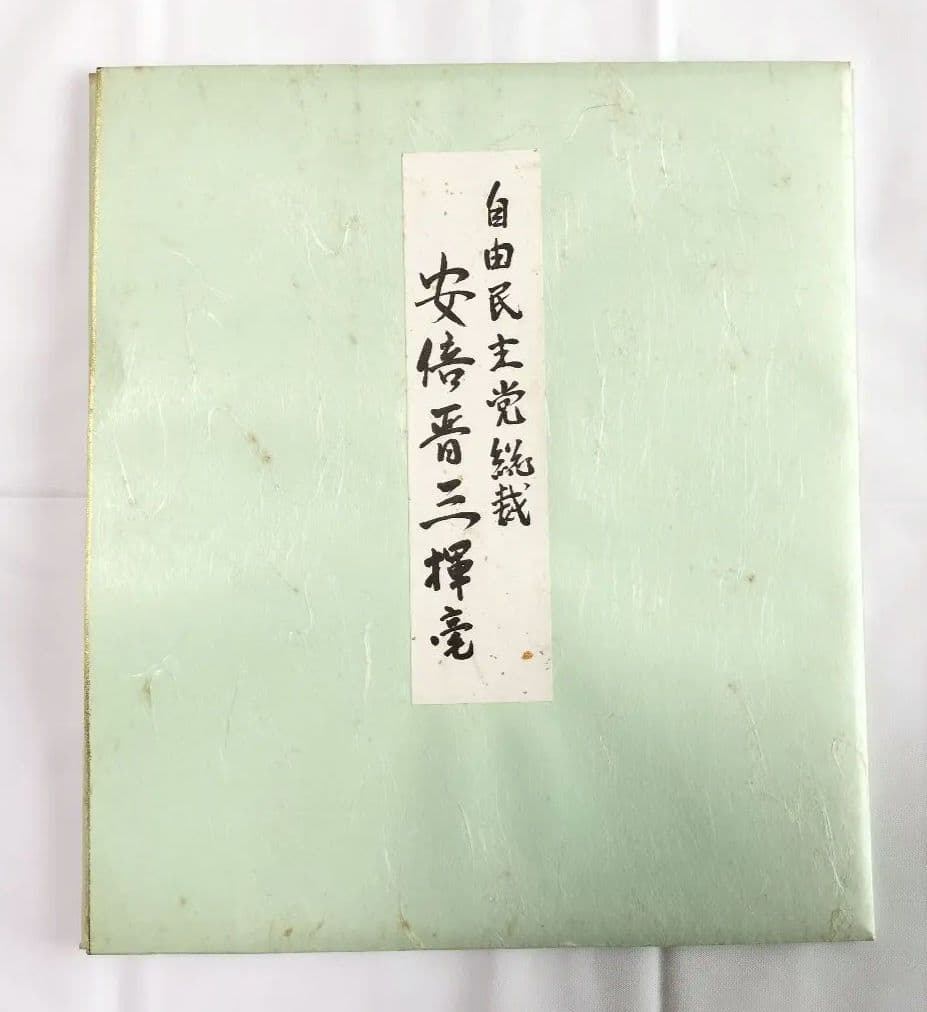 自由民主党総裁
安倍晋三揮毫